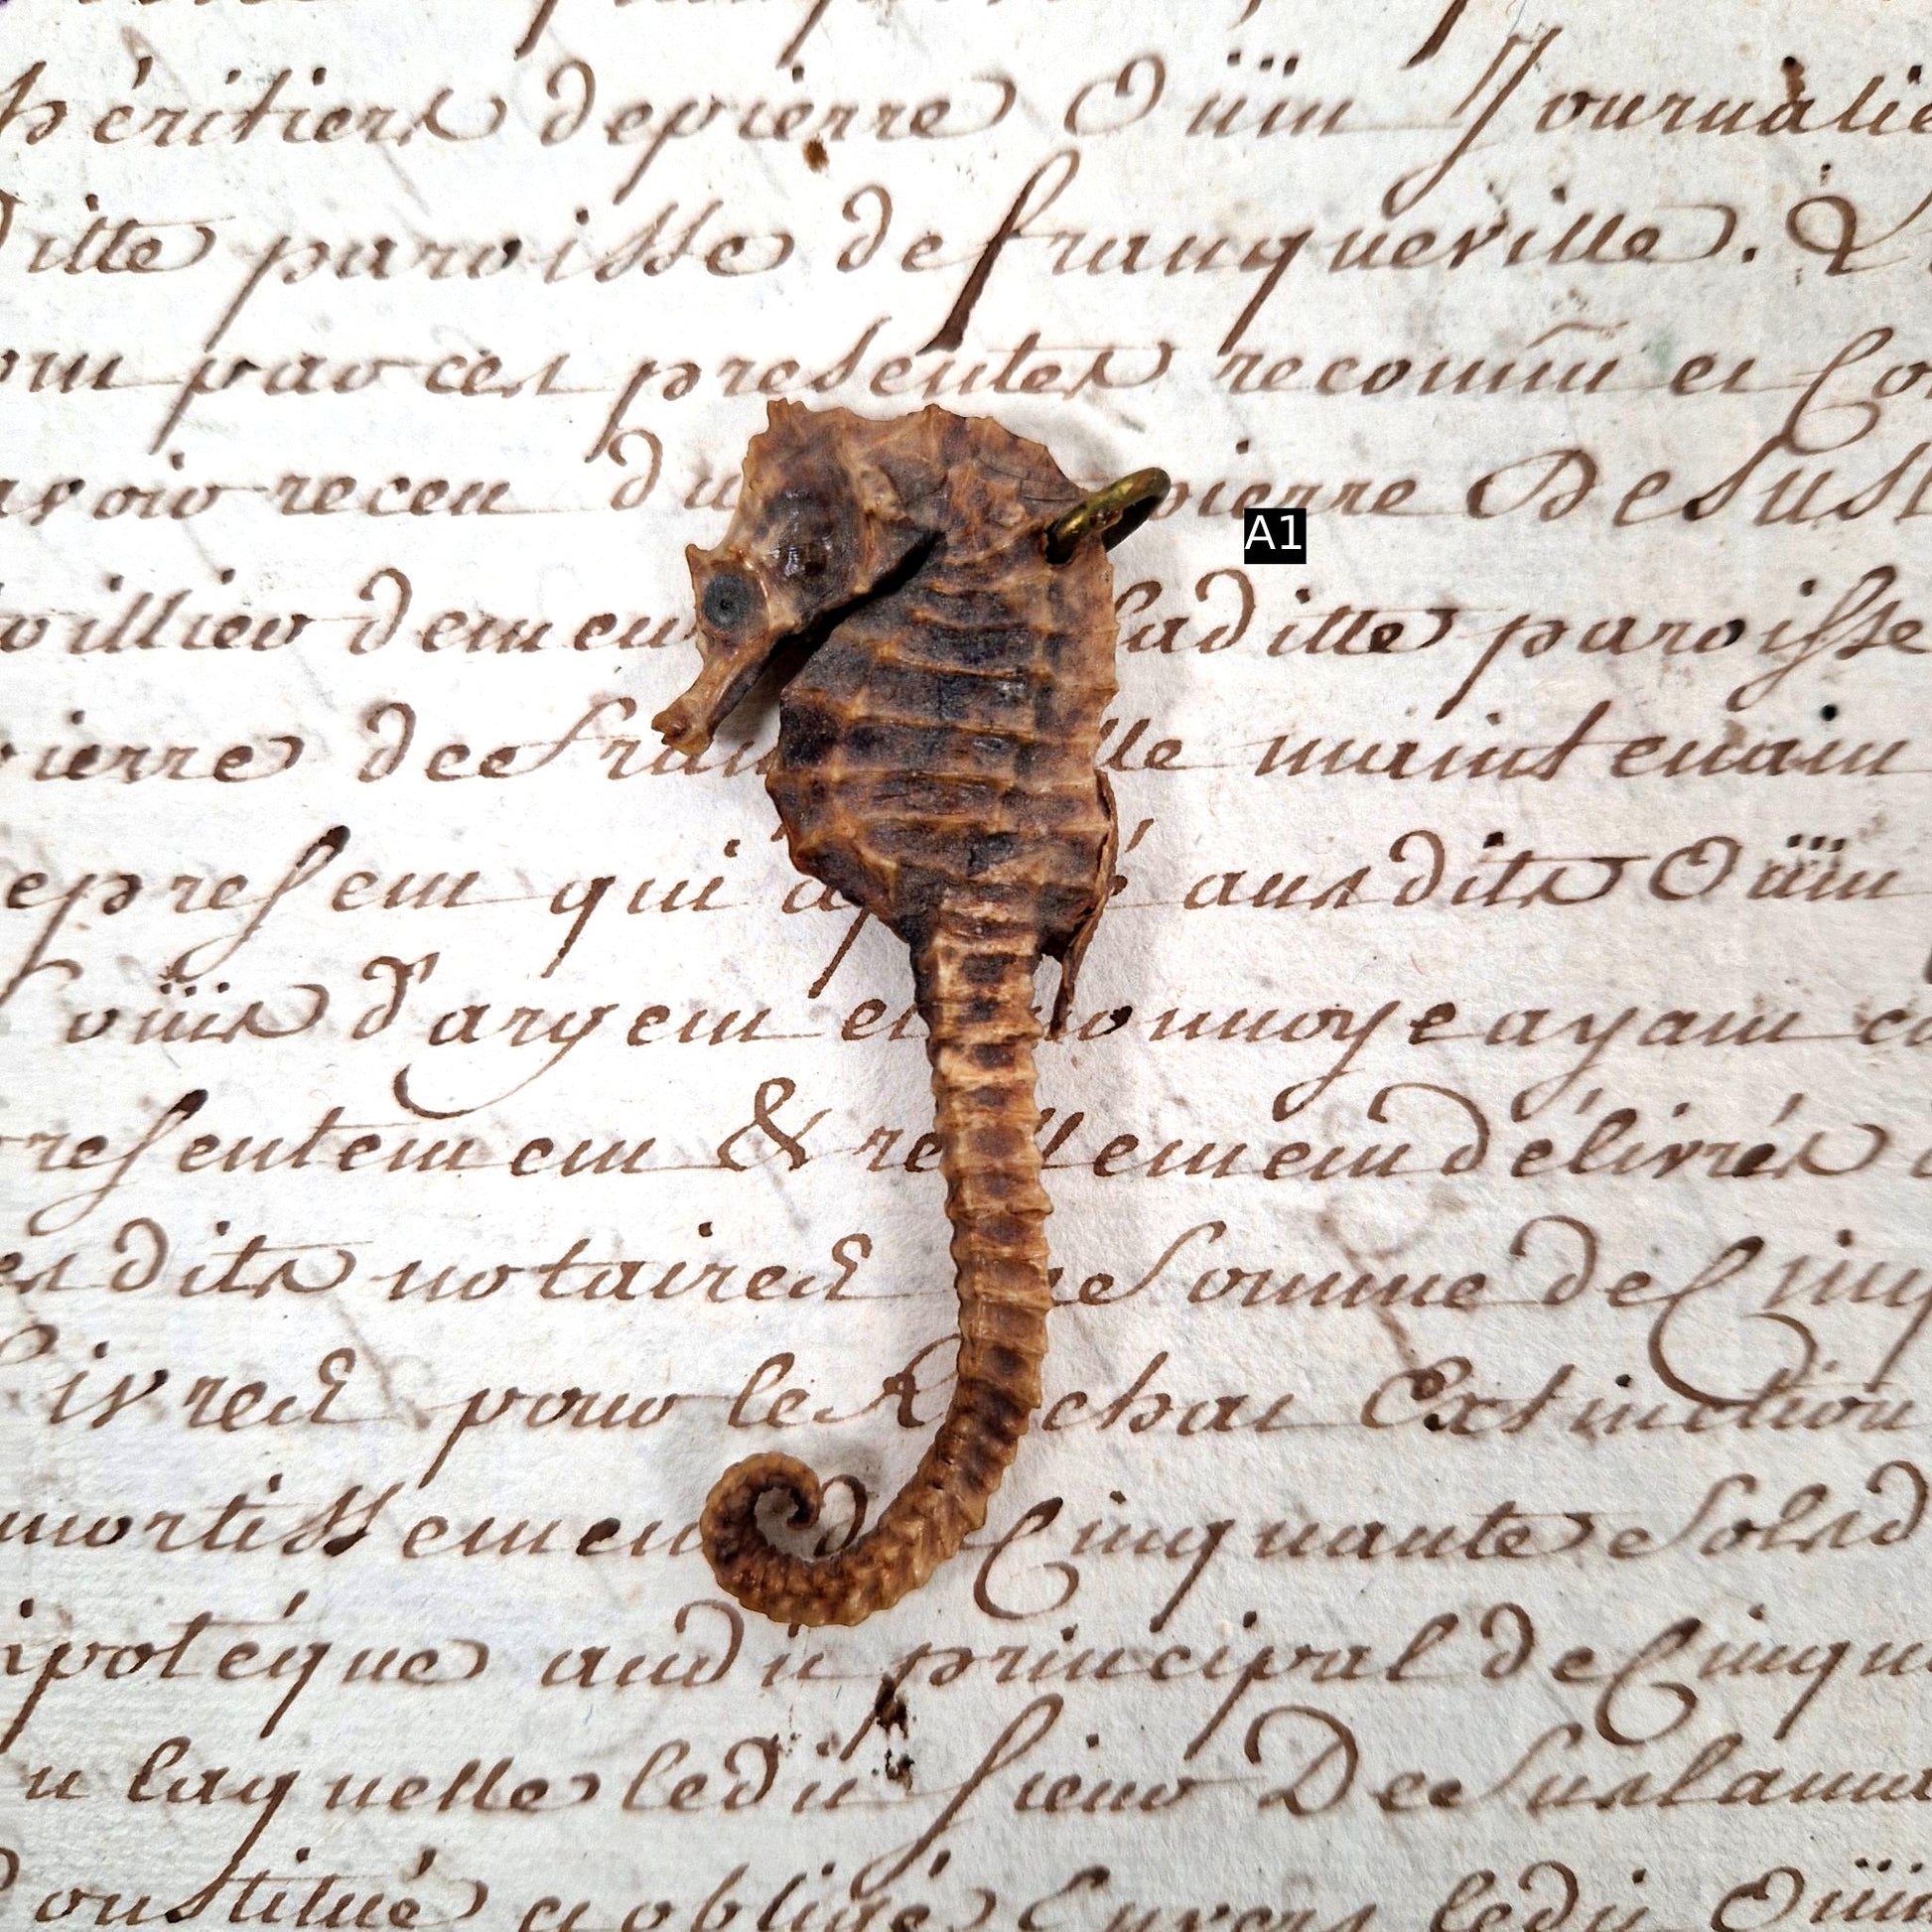 héritiers depierre Oüin Journalie
ditte paroisse defranqueville. &
par ces presentes reconnu et Co
avoir receu du pierre DeSus
demeu laditte paroisse
pierre de maintenant
present qui ausdits Oüin
Loüis d'argent et monnoye ayant co
presentement & reellement délivrés
esdits notaires Somme de Cinq
Livres pour le Rachat Extinction
amortissement de Cinquante Sols d
ipoteque audit principal de Cinqu
laquelle ledit Sieur DeSuslaun
Constitué et obligé Envers ledit Oüin
A1